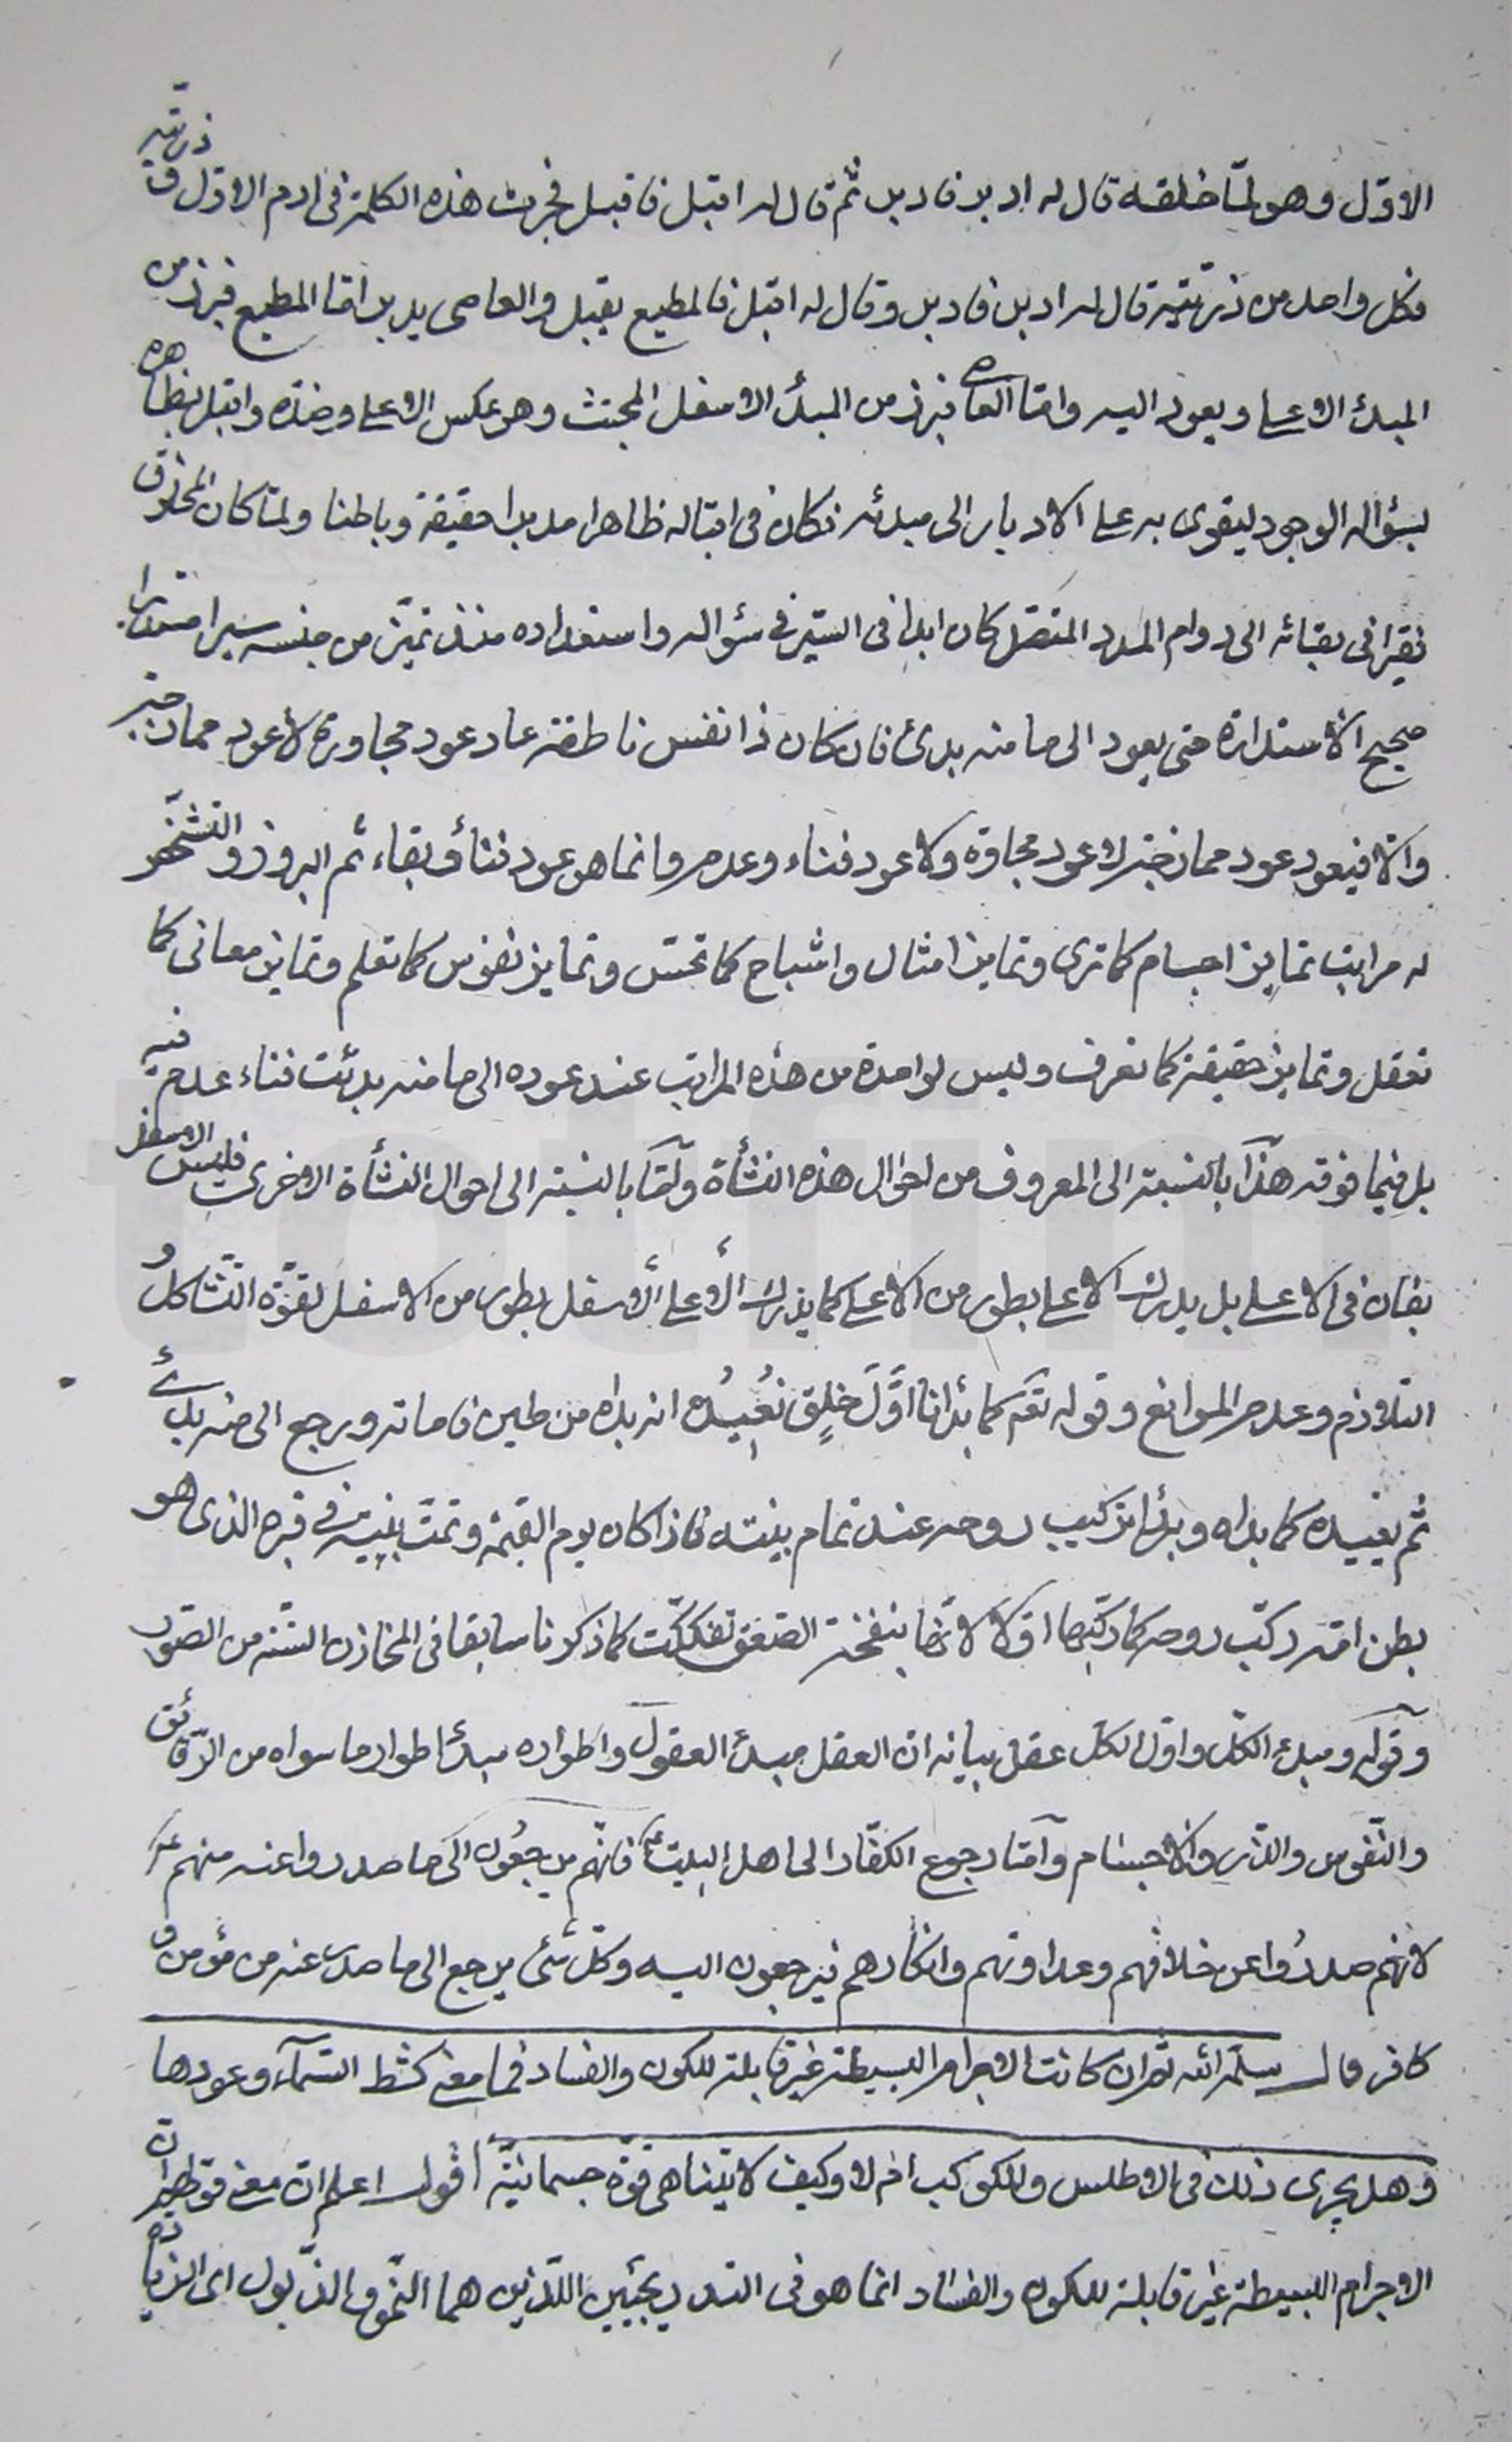 الاوّل وهو لمّا خلقه قال له ادبر فادبر ثم قال له اقبل فاقبل فجرت هذه الكلمة فى ادم الاوّل و ذريّته
فكل واحد من ذريّته قال له ادبر فادبر وقال له اقبل فالمطيع يقبل والعاصى يدبر امّا المطيع فبرز من
المبدء الاعلى ويعود اليه وامّا العاصى فبرز من المبدأ الاسفل المجتث وهو عكس الاعلى وضدّه واقبل بظاهره
بسؤاله الوجود ليقوى به على الادبار الى مبدئه فكان فى اقباله ظاهرا مدبرا حقيقة وباطنا ولمّا كان المخلوق
فقيرا فى بقائه الى دوام المدد المتّصل كان ابدا فى السّير فى سؤاله واستعداده منذ تميّز من جنسه سيرا مستديرا
صحيح الاستدارة حتى يعود الى ما منه بدئ فان كان ذا نفس ناطقة عاد عود مجاورة لا عود ممازجة
والّا فيعود عود ممازجة لا عود مجاورة ولا عود فناء وعدم وانما هو عود فناء وبقاء ثم البروز والتشخّص
له مراتب تمايز اجسام كما ترى وتمايز امثال واشباح كما تحسّ وتمايز نفوس كما تعلم وتمايز معانى كما
تعقل وتمايز حقيقة كما تعرف وليس لواحدة من هذه المراتب عند عوده الى ما منه بدئت فناء عدم فيه
بل فيما فوقه هذا بالنسبة الى المعروف من احوال هذه النشأة وامّا بالنسبة الى احوال النشأة الاخرى فليس الاسفل
بفان فى الاعلى بل يدرك الاعلى بطور من الاعلى كما يدرك الاعلى الاسفل بطور من الاسفل لقوّة التّشاكل و
التلازم وعدم الموانع وقوله تعۤ كما بدأنا اوَّلَ خلقٍ نُعيدُه انه بدأه من طين فاماته ورجع الى منه بدئ
ثم يعيده كما بدأه وبدأ بتركيب روحه عند تمام بنيته فاذا كان يوم القيمة وتمّت بنيته فى قبره الذى هو
بطن امّه ركّب روحه كما ركّبها اوّلا لانّها بنفخة الصّعق تفككّت كما ذكرنا سابقا فى المخازن السّتة من الصّور
وقوله ومبدء الكلّ واوّل الكلّ عقل بيانه ان العقل مبدء العقول واطواره مبدأ اطوار ما سواه من الرّقائق
والنّفوس والذّر والاجسام وامّا رجوع الكفّار الى اهل البيت فانّهم يرجعون الى ما صدروا عنه منهم
لانهم صدرُوا عن خلافهم وعداوتهم وانكارهم فيرجعون اليه وكلّ شئ يرجع الى ما صدر عنه من مؤمن و
كافر قال سلّمه الله تعۤ ان كانت الاجرام البسيطة غير قابلة للكون والفساد فما معنى كشط السّمآء وعودها
وهل يجرى ذلك فى الاطلس والكوكب ام لا وكيف لا يتناهى قوّة جسمانيّة اقول اعلم ان معنى قولهم ان
الاجرام البسيطة غير قابلة للكون والفساد انما هو فى التدريجيّين اللّذين هما النّموّ والذّبول اى الزيادة